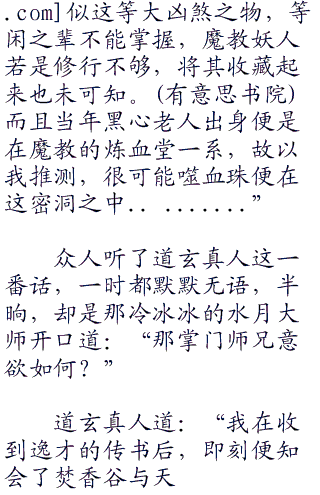 .com]似这等大凶煞之物，等
闲之辈不能掌握，魔教妖人
若是修行不够，将其收藏起
来也未可知。(有意思书院)
而且当年黑心老人出身便是
在魔教的炼血堂一系，故以
我推测，很可能噬血珠便在
这密洞之中.. ........”
众人听了道玄真人这一
番话，一时都默默无语，半
晌，却是那冷冰冰的水月大
师开口道：“那掌门师兄意
欲如何？”
道玄真人道：“我在收
到逸才的传书后，即刻便知
会了焚香谷与天